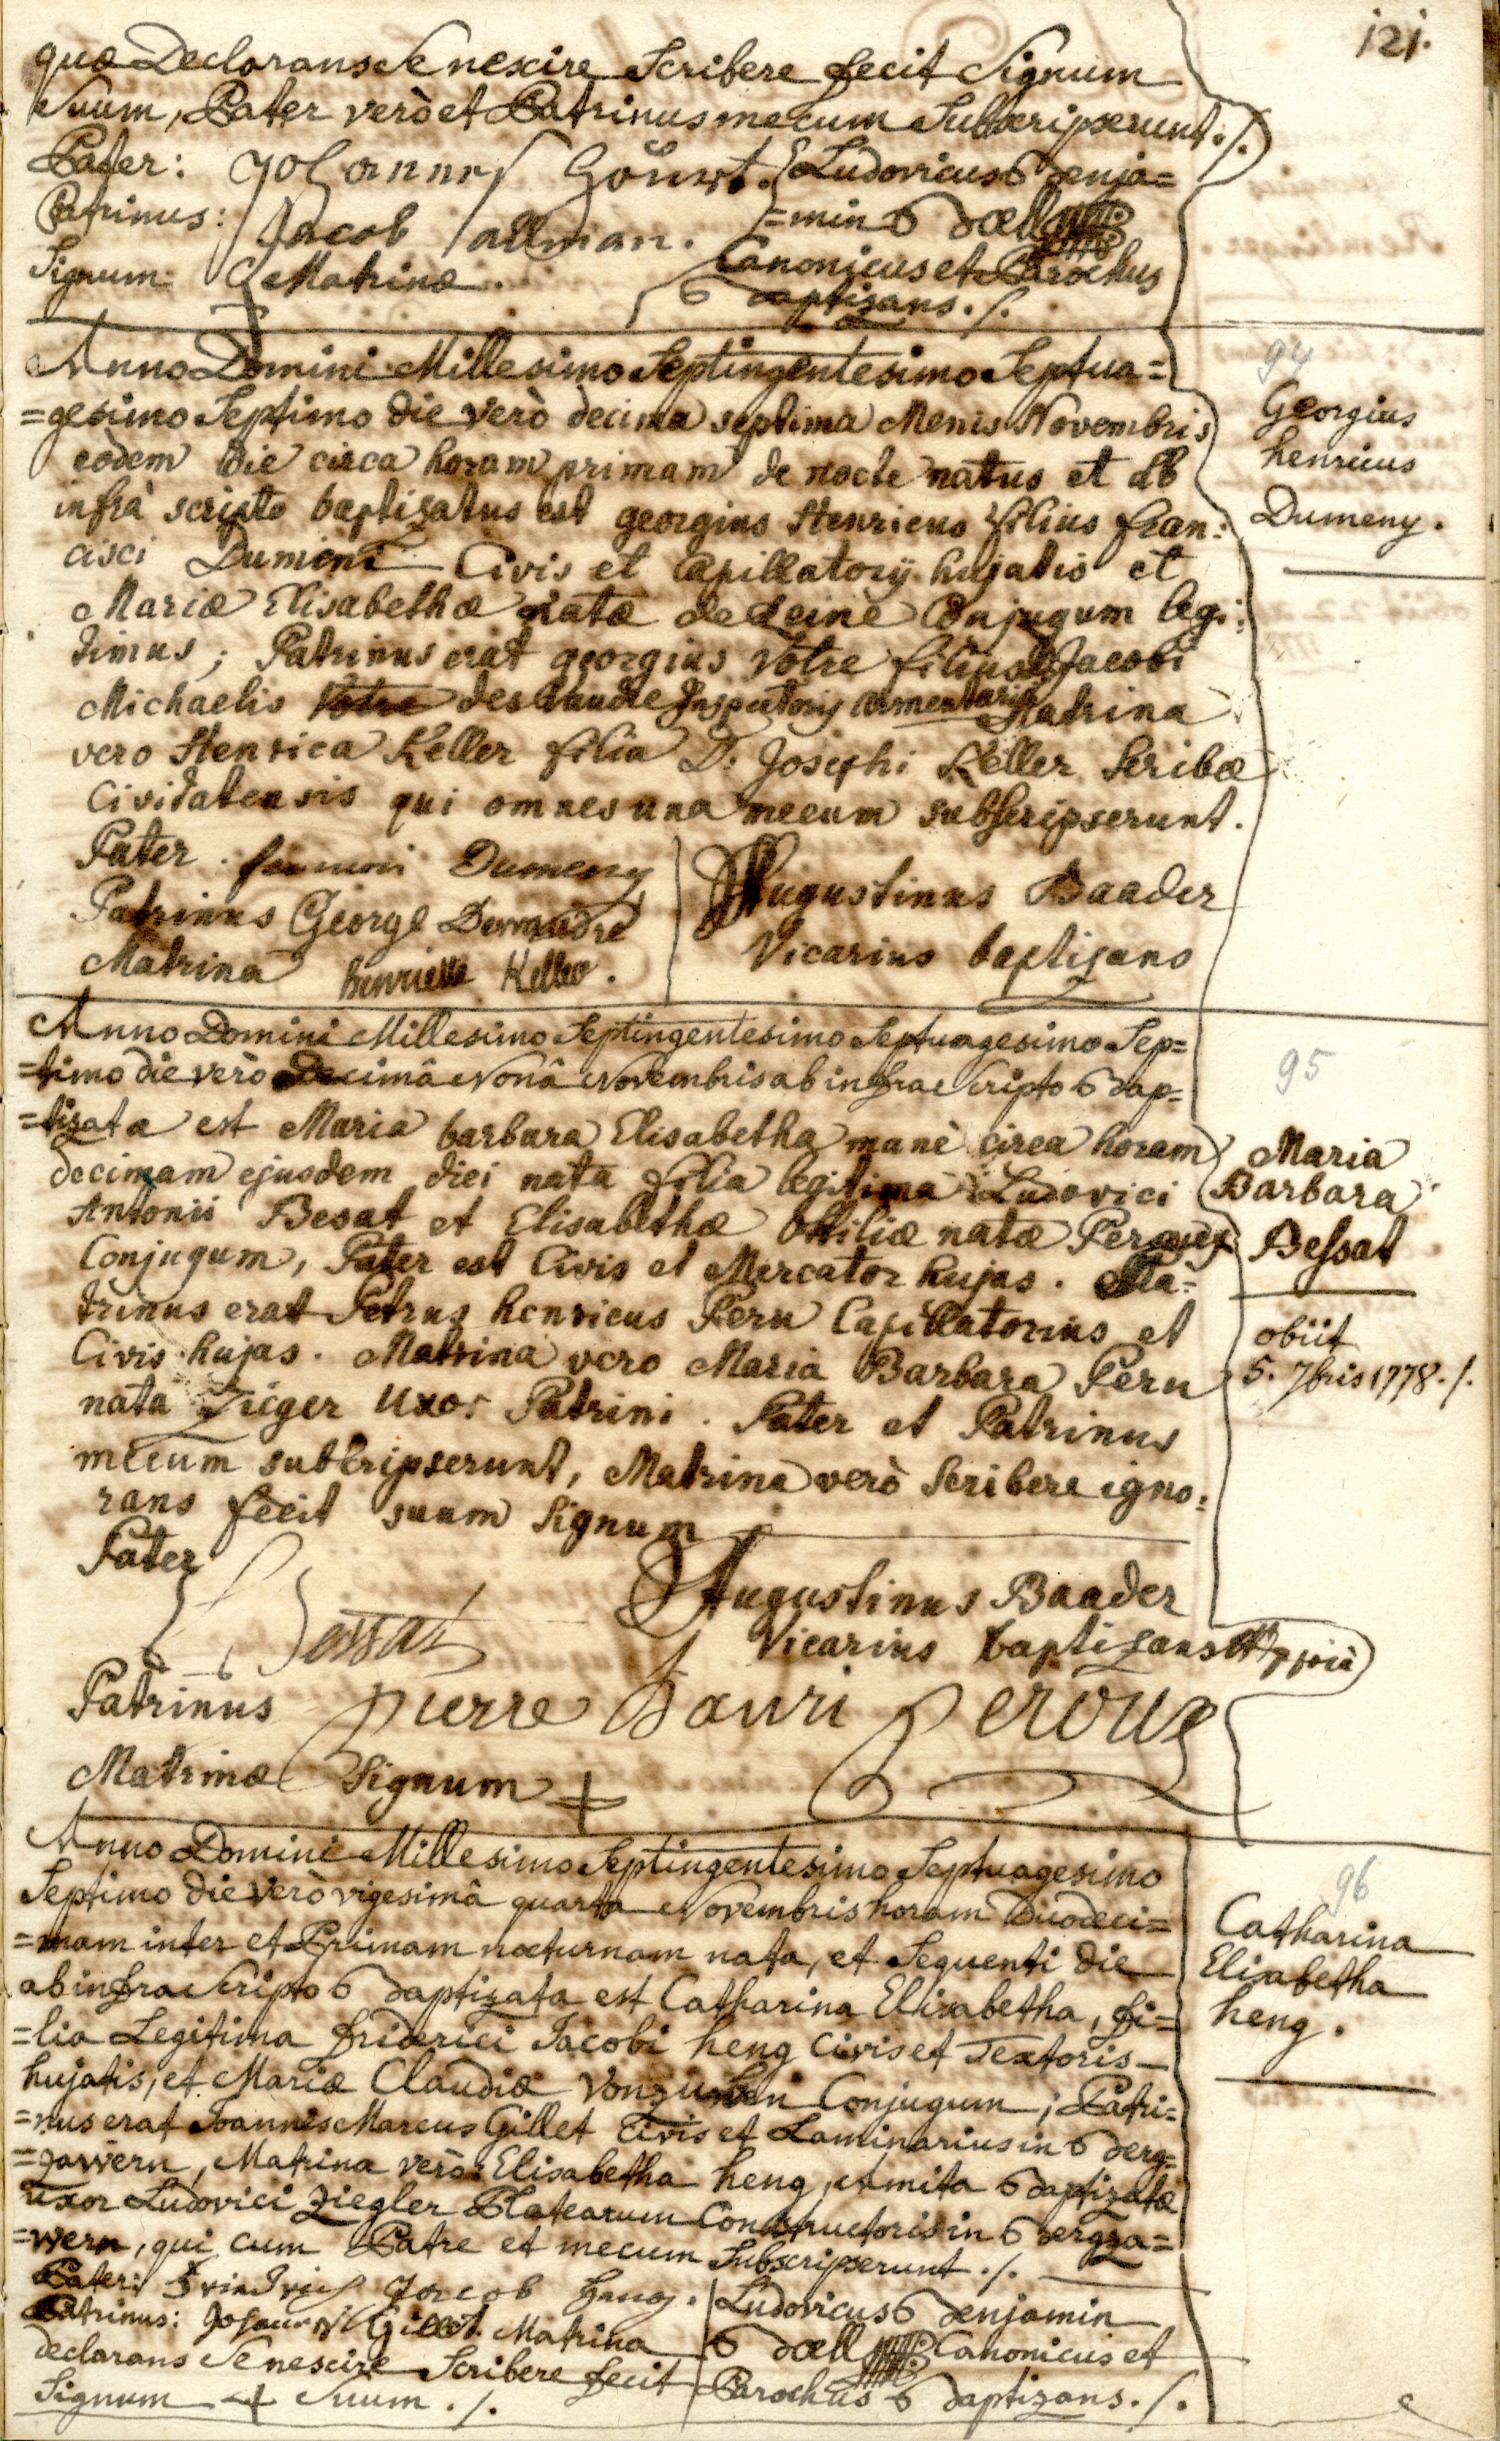 121.
quæ Declarans Se nescire Scribere fecit Signum
Suum, Pater verò et Patrinus mecum Subscripserunt ./.
Pater: Johannes
Ludovicus Benja=
=min Bœll
Patrinus: Jacob allman.
Canonicus et Parochus
Signum Matrinæ.
Baptizans ./.
Anno Domini Millesimo Septingentesimo Septua=
=gesimo Septimo die verò decima septima Mensis Novembris
eôdem die circa horam primam de nocte natus et ab
infrà scripto baptizatus est georgius Henricus filius fran:
cisci Dumeni Civis et Capillatorij hujatis et
Mariæ Elisabethæ natæ de Leine Conjugum legi:
timus; Patrinus erat georgius Votre filius D. Jacobi
Michaelis Votre desVaudre Inspectoris armentarii Matrina
vero Henrica Keller filia D: Josephi Keller Scribæ
Cividatensis qui omnes una mecum subscripserunt.
Pater Dumeny
Patrinus George Devaudre
Matrina henriette Keller.
Augustinus Baader
Vicarius baptizans
94
Georgius
henricus
Dumeny.
Anno Domini Millesimo Septingentesimo Septuagesimo Sep=
=timo die verò Decimâ Nonâ Novembris ab infra Scripto Bap=
=tizata est Maria barbara Elisabetha manè circa horam
decimam ejusdem diei nata filia legitima Ludovici
Antonii Besat et Elisabethæ Ottiliæ natæ
Conjugum, Pater est Civis et Mercator hujas. Pa=
trinus erat Petrus henricus Peru Capillatorius et
Civis hujas. Matrina vero Maria Barbara Peru
nata Zieger Uxor Patrini. Pater et Patrinus
mecum subscripserunt, Matrina verò Scribere igno:
rans fecit suum Signum
Pater
Bessat
Augustinus Baader
Vicarius baptizans
Patrinus pierre hanri peroux
Matrinæ Signum +
95
Maria
Barbara
Bessat
obiit
5. 7bris 1778 ./.
Anno Domini Millesimo Septingentesimo Septuagesimo
Septimo die verò vigesimâ quarta Novembris horam Duodeci=
=mam inter et Primam nocturnam nata, et Sequenti die
ab infra Scripto Baptizata est Catharina Elisabetha, fi=
=lia Legitima friderici Jacobi heng Civis et Textoris
hujatis, et Mariæ Claudiæ Conjugum; Patri=
=nus erat Joannes Marcus Gillet Civis et Laminarius in Berg=
=zavvern, Matrina verò Elisabetha heng, Amita Baptizatæ
uxor Ludovici Ziegler Platearum Constructoris in Bergza=
=wern, qui cum Patre et mecum Subscripserunt ./.
Pater: Fridrich Jacob heng.
Patrinus: Johannes Gillet. Matrina
declarans Se nescire Scribere fecit
Signum + Suum ./.
Ludovicus Benjamin
Bœll Canonicus et
Parochus Baptizans ./.
96
Catharina
Elisabetha
heng.